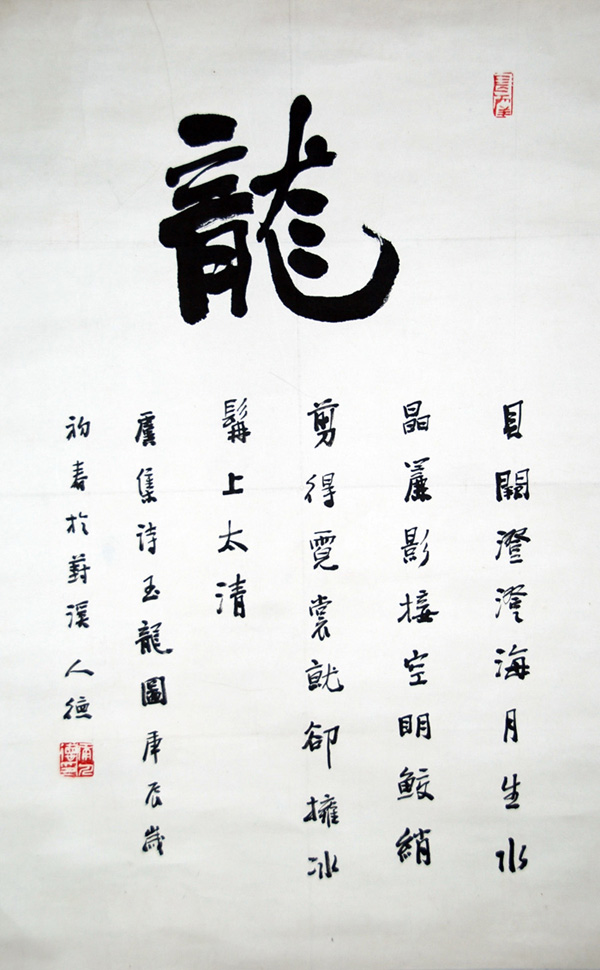 龍
貝闕澄澄海月生水
晶簾影接空明鮫綃
剪得霓裳就卻擁冰
鬅上太清
虞集詩玉龍圖庚辰歲
初春於蔚溪人德